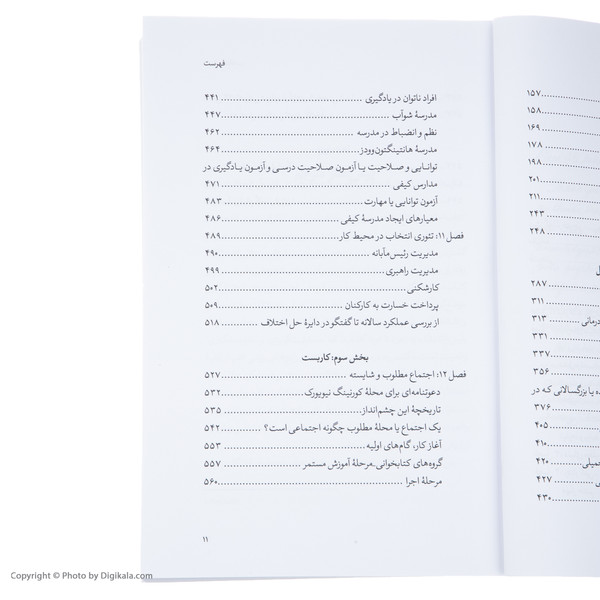 فهرست
افراد ناتوان در یادگیری ........ ۴۴۱
مدرسهٔ شوآب ........ ۴۴۷
نظم و انضباط در مدرسه ........ ۴۶۲
مدرسهٔ هانتینگتون‌وودز ........ ۴۶۴
توانایی و صلاحیت یا آزمون صلاحیت درسی و آزمون یادگیری در
مدارس کیفی ........ ۴۷۱
آزمون توانایی یا مهارت ........ ۴۸۳
معیارهای ایجاد مدرسهٔ کیفی ........ ۴۸۶
فصل ۱۱: تئوری انتخاب در محیط کار ........ ۴۸۹
مدیریت رئیس‌مآبانه ........ ۴۹۰
مدیریت راهبری ........ ۴۹۹
کارشکنی ........ ۵۰۲
پرداخت خسارت به کارکنان ........ ۵۰۹
از بررسی عملکرد سالانه تا گفتگو در دایرهٔ حل اختلاف ........ ۵۱۸
بخش سوم: کاربست
فصل ۱۲: اجتماع مطلوب و شایسته ........ ۵۲۷
دعوتنامه‌ای برای محلهٔ کورنینگ نیویورک ........ ۵۳۲
تاریخچهٔ این چشم‌انداز ........ ۵۳۵
یک اجتماع یا محلهٔ مطلوب چگونه اجتماعی است؟ ........ ۵۴۲
آغاز کار، گام‌های اولیه ........ ۵۵۳
گروه‌های کتابخوانی_مرحلهٔ آموزش مستمر ........ ۵۵۷
مرحلهٔ اجرا ........ ۵۶۰
۱۱
۱۵۷
۱۵۸
۱۶۹
۱۷۸
۱۹۸
۲۰۱
۲۱۱
۲۴۳
۲۴۸
۲۸۷
۳۱۱
۳۱۳
۳۳۱
۳۳۷
۳۵۶
یا بزرگسالانی که در
۳۷۶
۴۰۵
۴۱۰
۴۲۰
۴۲۷
۴۳۰
Copyright © Photo by Digikala.com